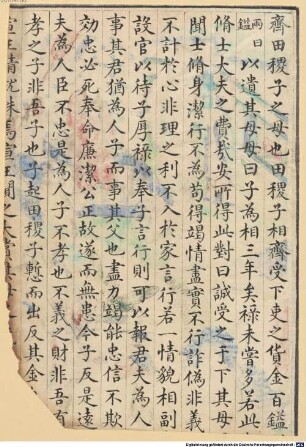 齊田稷子之母也田稷子相齊受下吏之貨金百鎰
兩曰鎰以遺其母母曰子為相三年矣祿未嘗多若此
脩士大夫之費哉安所得此對曰誠受之于下其母
聞士脩身潔行不為苟得竭情盡實不行詐偽非義
不計於心非理之利不入於家言行若一情貌相副
設官以待子厚祿以奉子言行則可以報君夫為人
事其君猶為人子而事其父也盡力竭能忠信不欺
効忠必死奉命廉潔公正故遂而無患今子反是遠
夫為人臣不忠是為人子不孝也不義之財非吾有
孝之子非吾子也子起田稷子慙而出反其金
宣王請就誅焉宣王聞之大賞其
Digitalisierung gefördert durch die Deutsche Forschungsgemeinschaft